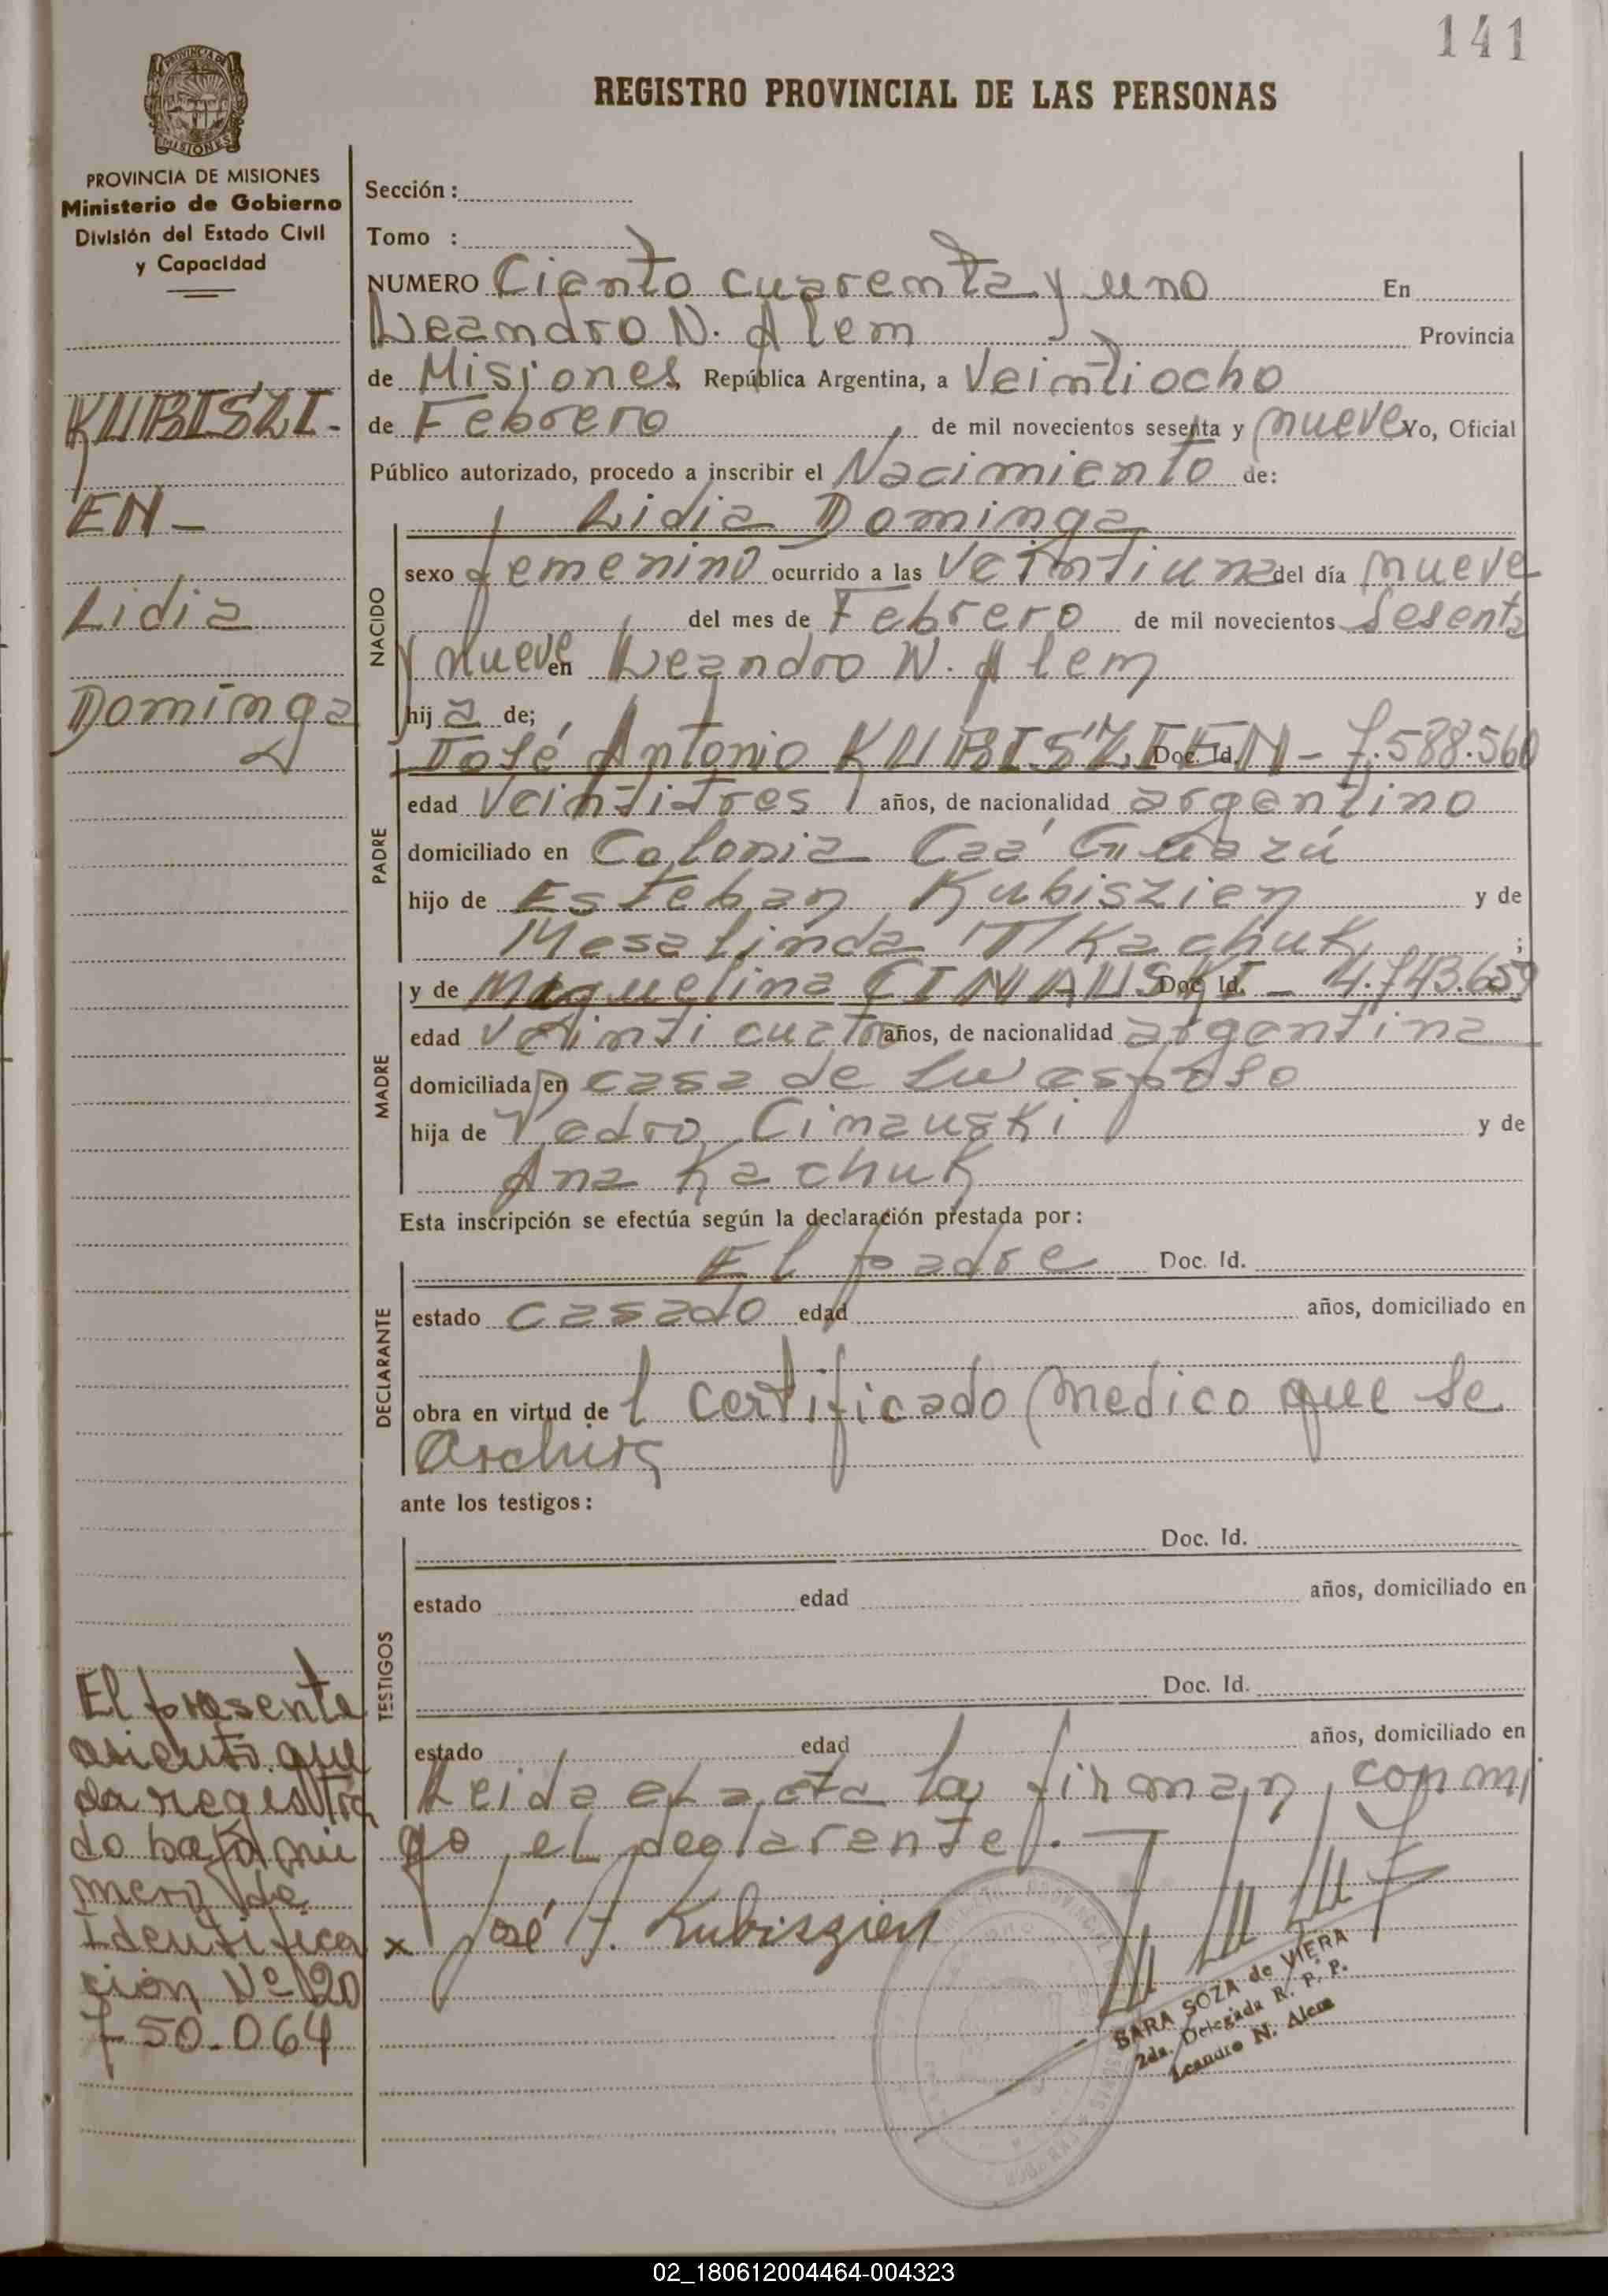 141
REGISTRO PROVINCIAL DE LAS PERSONAS
PROVINCIA DE MISIONES
Ministerio de Gobierno
División del Estado Civil
y Capacidad
KUBISZI-
EN-
Lidia
Dominga
Sección :
Tomo :
NUMERO Ciento cuarenta y uno En
Leandro N. Alem Provincia
de Misiones, República Argentina, a Veintiocho
de Febrero de mil novecientos sesenta y nueve Yo, Oficial
Público autorizado, procedo a inscribir el Nacimiento de:
NACIDO
Lidia Dominga
sexo femenino ocurrido a las Veintiuna del día nueve
del mes de Febrero de mil novecientos Sesenta
y nueve en Leandro N. Alem
hij a de;
PADRE
José Antonio KUBISZIEN - Doc. Id. 7.588.560
edad Veintitres años, de nacionalidad argentino
domiciliado en Colonia Caá Guazú
hijo de Esteban Kubiszien y de
Mesalinda Tkachuk ;
MADRE
y de Miguelina CINAUSKI - Doc. Id. 4.743.659
edad Veinticuatro años, de nacionalidad argentina
domiciliada en casa de su esposo
hija de Pedro Cinauski y de
Ana Kachuk
Esta inscripción se efectúa según la declaración prestada por:
DECLARANTE
El padre Doc. Id.
estado casado edad años, domiciliado en
obra en virtud de l certificado medico que se
archiva
ante los testigos:
TESTIGOS
Doc. Id.
estado edad años, domiciliado en
Doc. Id.
estado edad años, domiciliado en
Leida el acta la firman, conmi
go el declarante.-
x José A. Kubiszien
SARA SOZA de VIERA
2da. Delegada R. P. P.
Leandro N. Alem
El presente
asiento que
da registra
do bajo nú
mero de
Identifica
ción Nº 20
7 50.064
02_180612004464-004323